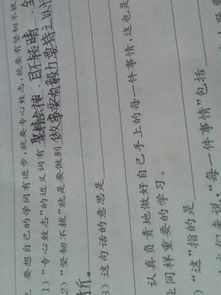 要想自己的学问有进步,就要专心致志,就要有坚韧不拔
1) “专心致志”的近义词有 聚精会神、目不转睛、全
2) “坚韧不拔”就是要做到 做事要有毅力要持之以
折。
3) 这句话的意思是
认真负责地做好自己手上的每一件事情,这也是
上同样重要的学习。
) “这”指的是
来说,“每一件事情”包括